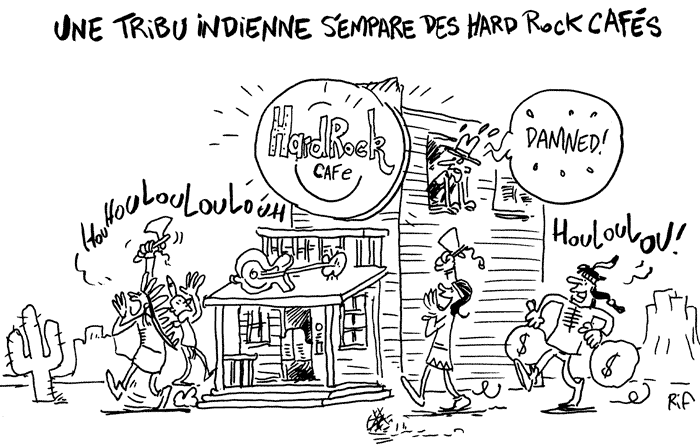 UNE TRIBU INDIENNE S'EMPARE DES HARD ROCK CAFÉS
Hard Rock
CAFe
DAMNED!
HOUHOULOULOULOÚH
HOULOULOU!
$ $
RiF